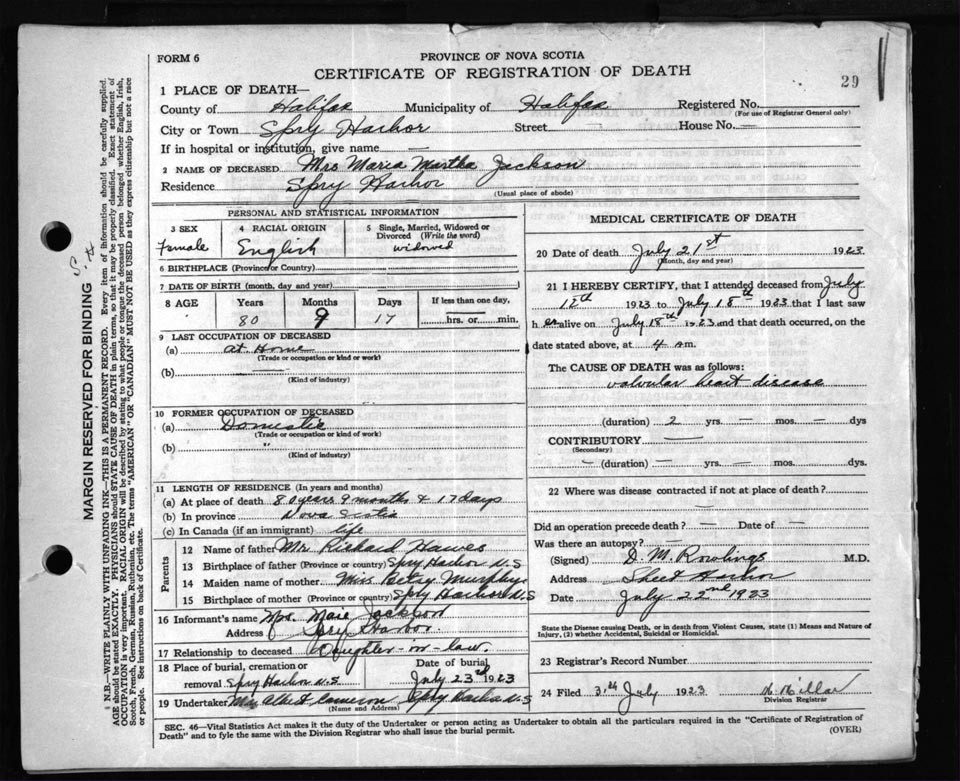 29
FORM 6
PROVINCE OF NOVA SCOTIA
CERTIFICATE OF REGISTRATION OF DEATH
1 PLACE OF DEATH—
County of Halifax Municipality of Halifax Registered No.
(For use of Registrar General only)
City or Town Spry Harbor Street — House No. —
If in hospital or institution, give name —
2 NAME OF DECEASED Mrs Maria Martha Jackson
Residence Spry Harbor
(Usual place of abode)
PERSONAL AND STATISTICAL INFORMATION
3 SEX 4 RACIAL ORIGIN 5 Single, Married, Widowed or Divorced (Write the word)
Female English widowed
6 BIRTHPLACE (Province or Country)
7 DATE OF BIRTH (month, day and year)
8 AGE Years Months Days If less than one day,
80 9 17 hrs. or min.
9 LAST OCCUPATION OF DECEASED
(a) at Home
(Trade or occupation or kind or work)
(b) —
(Kind of industry)
10 FORMER OCCUPATION OF DECEASED
(a) Domestic
(Trade or occupation or kind of work)
(b) "
(Kind of industry)
11 LENGTH OF RESIDENCE (In years and months)
(a) At place of death 80 years 9 months & 17 days
(b) In province Nova Scotia
(c) In Canada (if an immigrant) life
Parents
12 Name of father Mr. Richard Hawes
13 Birthplace of father (Province or country) Spry Harbor N.S
14 Maiden name of mother Miss Betsy Murphy
15 Birthplace of mother (Province or country) Spry Harbor N.S
16 Informant's name Mrs. Jackson
Address Spry Harbor
17 Relationship to deceased Daughter-in-law
18 Place of burial, cremation or Date of burial
removal Spry Harbor N.S July 23rd 1923
19 Undertaker Albert Cameron Spry Harbor N.S
(Name and Address)
MEDICAL CERTIFICATE OF DEATH
20 Date of death July 21st 1923
(Month, day and year)
21 I HEREBY CERTIFY, that I attended deceased from July
12th 1923 to July 18th 1923 that I last saw
h er alive on July 18th 1923 and that death occurred, on the
date stated above, at 4 am.
The CAUSE OF DEATH was as follows:
valvular heart disease
(duration) 2 yrs. — mos. — dys
CONTRIBUTORY —
(Secondary)
— (duration) — yrs. — mos. — dys.
22 Where was disease contracted if not at place of death?
—
Did an operation precede death? — Date of —
Was there an autopsy? —
(Signed) D. M. Rowlings M.D.
Address Sheet Harbor
Date July 22nd 1923
State the Disease causing Death, or in death from Violent Causes, state (1) Means and Nature of
Injury, (2) whether Accidental, Suicidal or Homicidal.
23 Registrar's Record Number
24 Filed July 1923
Division Registrar
SEC. 46—Vital Statistics Act makes it the duty of the Undertaker or person acting as Undertaker to obtain all the particulars required in the "Certificate of Registration of
Death" and to fyle the same with the Division Registrar who shall issue the burial permit.
(OVER)
MARGIN RESERVED FOR BINDING
N.B.—WRITE PLAINLY WITH UNFADING INK—THIS IS A PERMANENT RECORD. Every item of information should be carefully supplied.
AGE should be stated EXACTLY. PHYSICIANS should STATE CAUSE OF DEATH in plain terms, so that it may be properly classified. Exact statement of
OCCUPATION is very important. RACIAL ORIGIN will be described by stating to what people or tongue the deceased person belonged whether English, Irish,
Scotch, French, German, Russian, Ruthenian, etc. The terms "AMERICAN" OR "CANADIAN" MUST NOT BE USED as they express citizenship but not a race
or people. See instructions on back of Certificate.